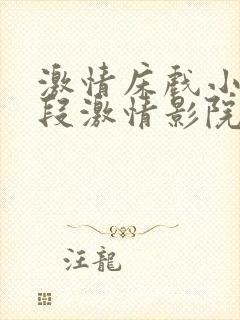 激情床戲小
段激情影院
汪龍